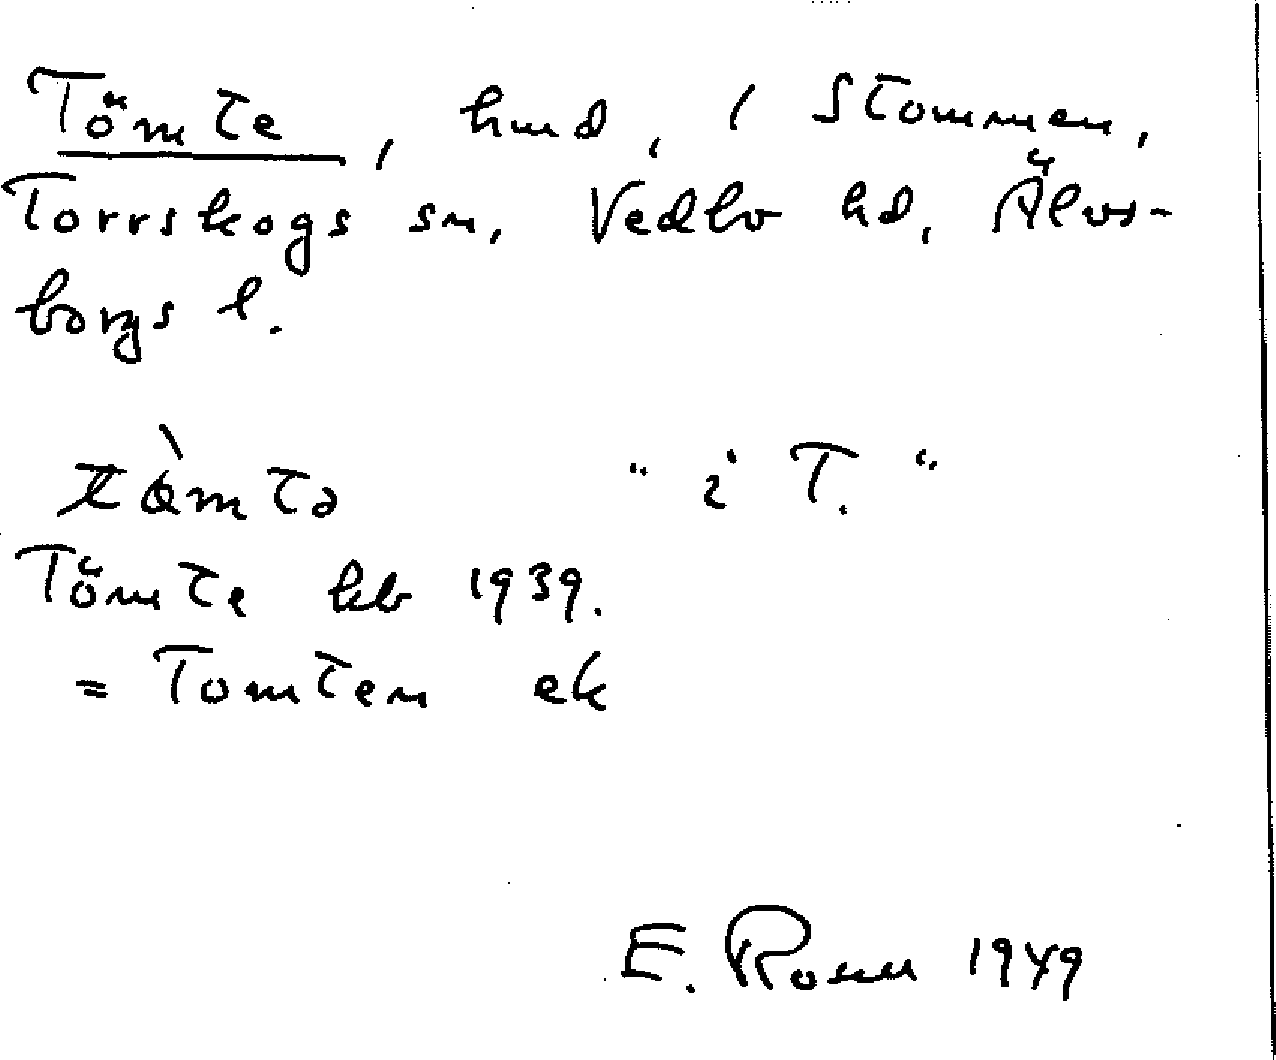 Tömte, hmd, / Stommen,
Torrskogs sn, Vedbo hd, Älvs-
borgs l.
"i T."
Tömte kb 1939.
= Tomten ek
E. Rosell 1949